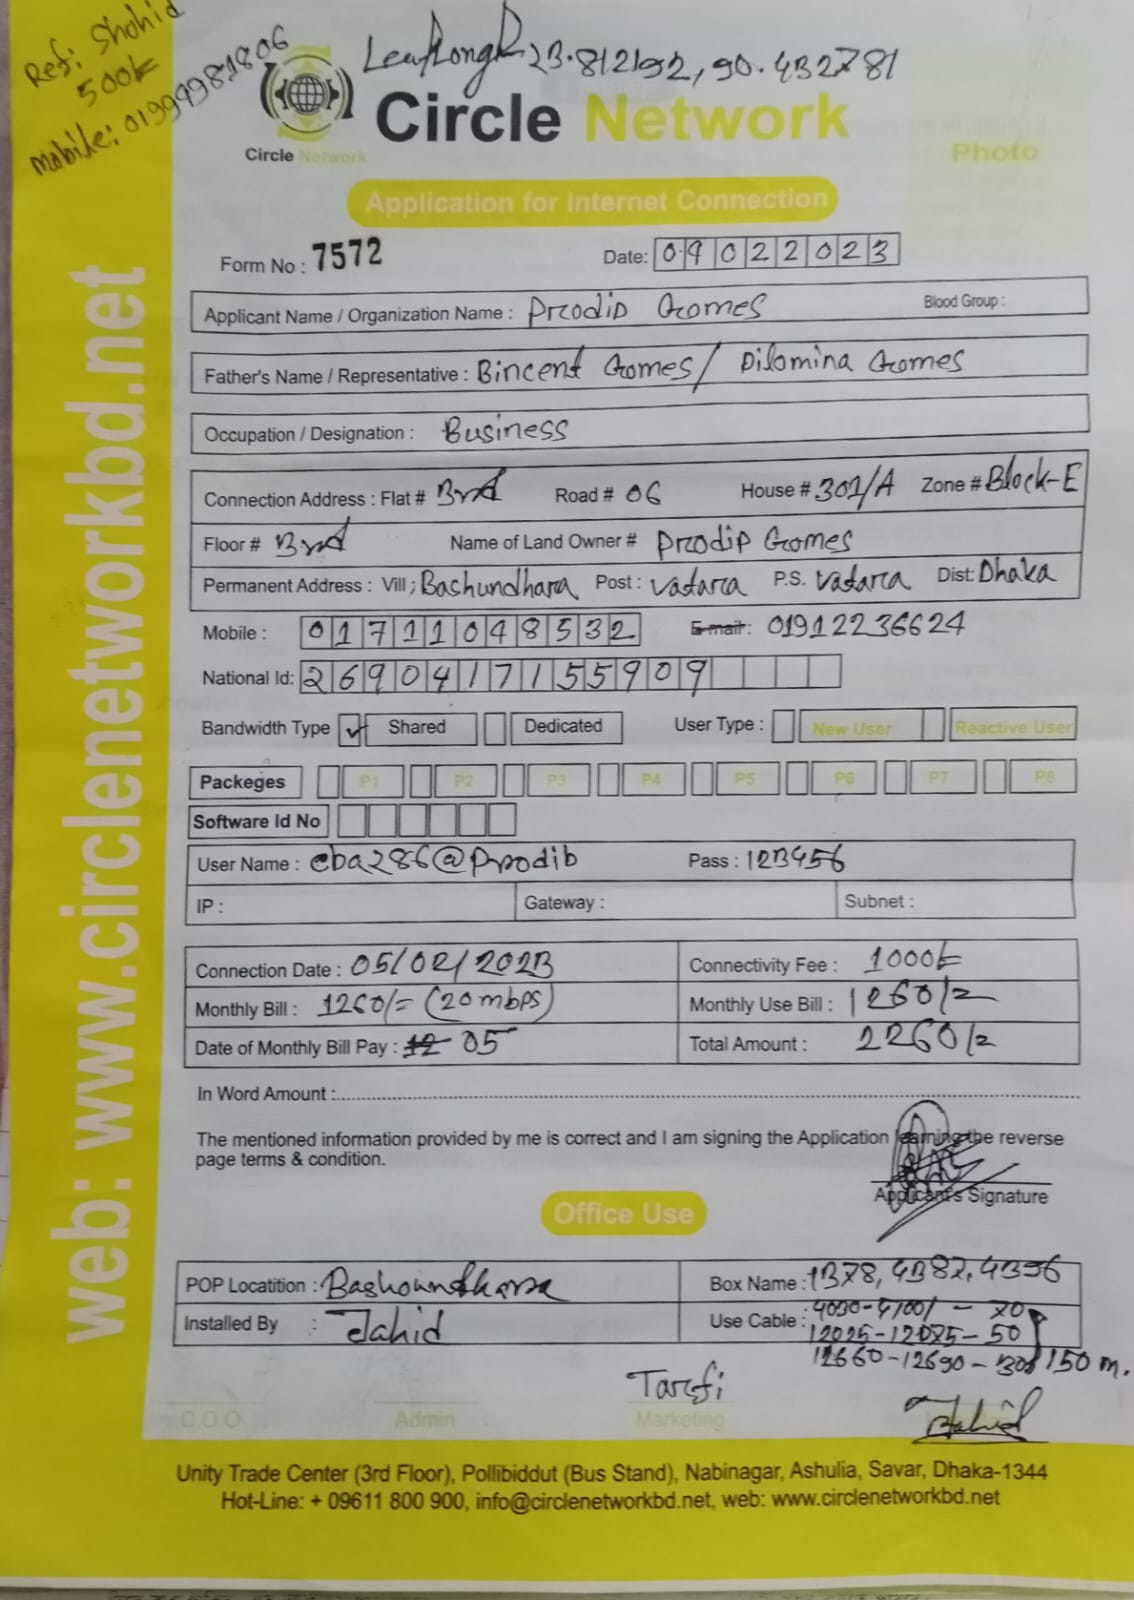 Ref: Shohid
500/=
mobile: 01999981806
23.812192, 90.432781
Circle Network
Circle Network
Photo
Application for Internet Connection
Form No : 7572
Date: 09022023
Applicant Name / Organization Name : Prodip Gomes Blood Group :
Father's Name / Representative : Bincent Gomes / Dilomina Gomes
Occupation / Designation : Business
Connection Address : Flat # 3rd Road # 06 House # 301/A Zone # Block-E
Floor # 3rd Name of Land Owner # Prodip Gomes
Permanent Address : Vill; Bashundhara Post : Vatara P.S. Vatara Dist: Dhaka
Mobile : 01711048532 E-mail: 01912236624
National Id: 2690417155909
Bandwidth Type ✓ Shared Dedicated User Type : New User Reactive User
Packeges P1 P2 P3 P4 P5 P6 P7 P8
Software Id No
User Name : cba286@prodib Pass : 123456
IP : Gateway : Subnet :
Connection Date : 05/02/2023 Connectivity Fee : 1000/=
Monthly Bill : 1260/= (20 mbps) Monthly Use Bill : 1260/=
Date of Monthly Bill Pay : 12 05 Total Amount : 2260/=
In Word Amount :
The mentioned information provided by me is correct and I am signing the Application learning the reverse
page terms & condition.
Applicant's Signature
Office Use
POP Locatition : Bashoundhara Box Name :
Installed By : Jahid Use Cable :
12025-12075-50
12660-12690-30 150 m.
Tarefi
Jahid
C.O.O Admin Marketing
Unity Trade Center (3rd Floor), Pollibiddut (Bus Stand), Nabinagar, Ashulia, Savar, Dhaka-1344
Hot-Line: + 09611 800 900, info@circlenetworkbd.net, web: www.circlenetworkbd.net
web: www.circlenetworkbd.net